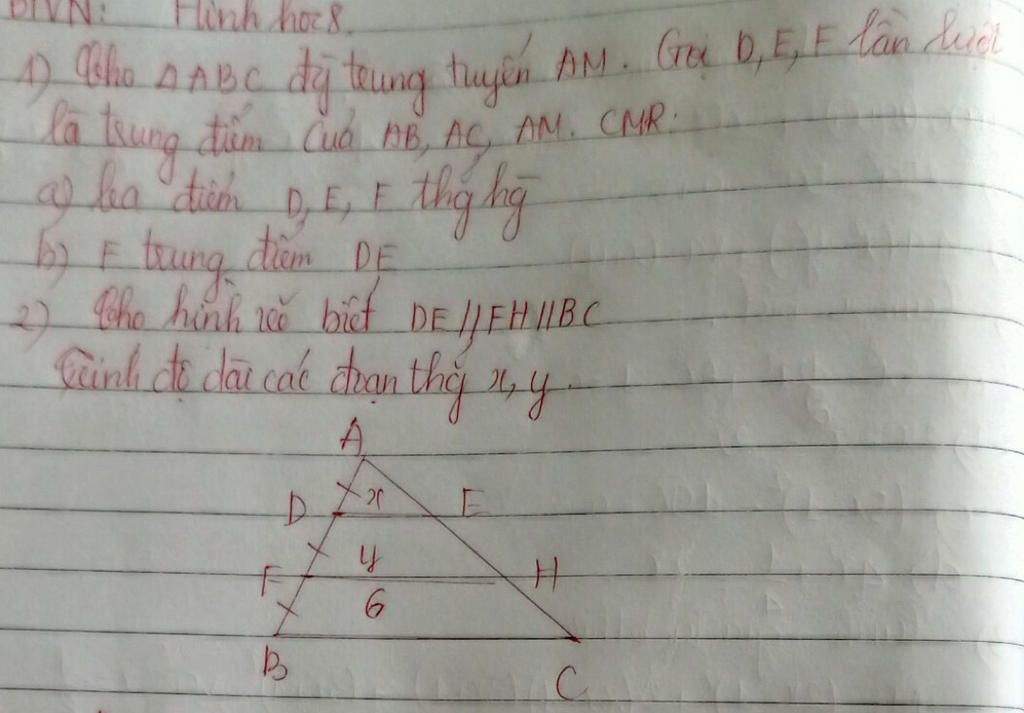 BTVN: Hình học 8.
1) Cho △ABC đg̃ trung tuyến AM. Gọi D, E, F lần lượt
là trung điểm của AB, AC, AM. CMR:
a) ba điểm D, E, F thg̉ hg̃
b) F trung điểm DE
2) Cho hình vẽ biết DE // FH // BC
Tính độ dài các đoạn thg̉ x, y.
A
D x E
F y H
6
B
C